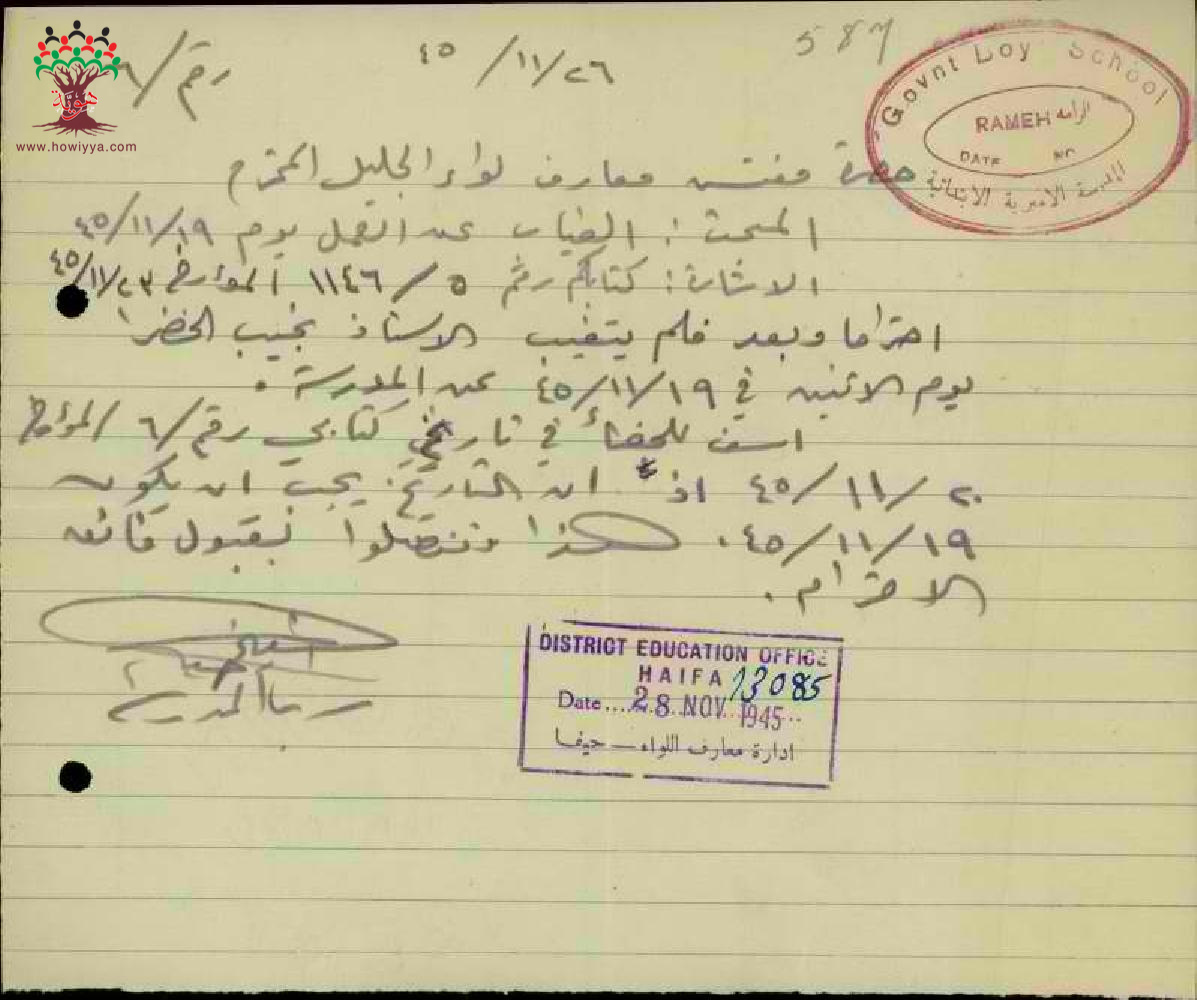 587
رقم/
٤٥/١١/٢٦
Govnt Boy School
RAMEH الرامه
DATE NO
المدرسة الاميرية الابتدائية
هوية
www.howiyya.com
حضرة مفتش معارف لواء الجليل المحترم
المبحث: الغياب عن العمل يوم ٤٥/١١/١٩
الاشارة: كتابكم رقم ٥/١١٤٦ المؤرخ ٤٥/١١/٢٣
احتراما وبعد فلم يتغيب الاستاذ نجيب الخضرا
يوم الاثنين في ٤٥/١١/١٩ عن المدرسة.
اسف للخطأ في تاريخ كتابي رقم/٦ المؤرخ
٤٥/١١/٢٠ اذ ان التاريخ يجب ان يكون
٤٥/١١/١٩. هذا وتفضلوا بقبول فائق
الاحترام.
المدرسة
DISTRICT EDUCATION OFFICE
HAIFA 13085
Date....28 NOV 1945
ادارة معارف اللواء — حيفا